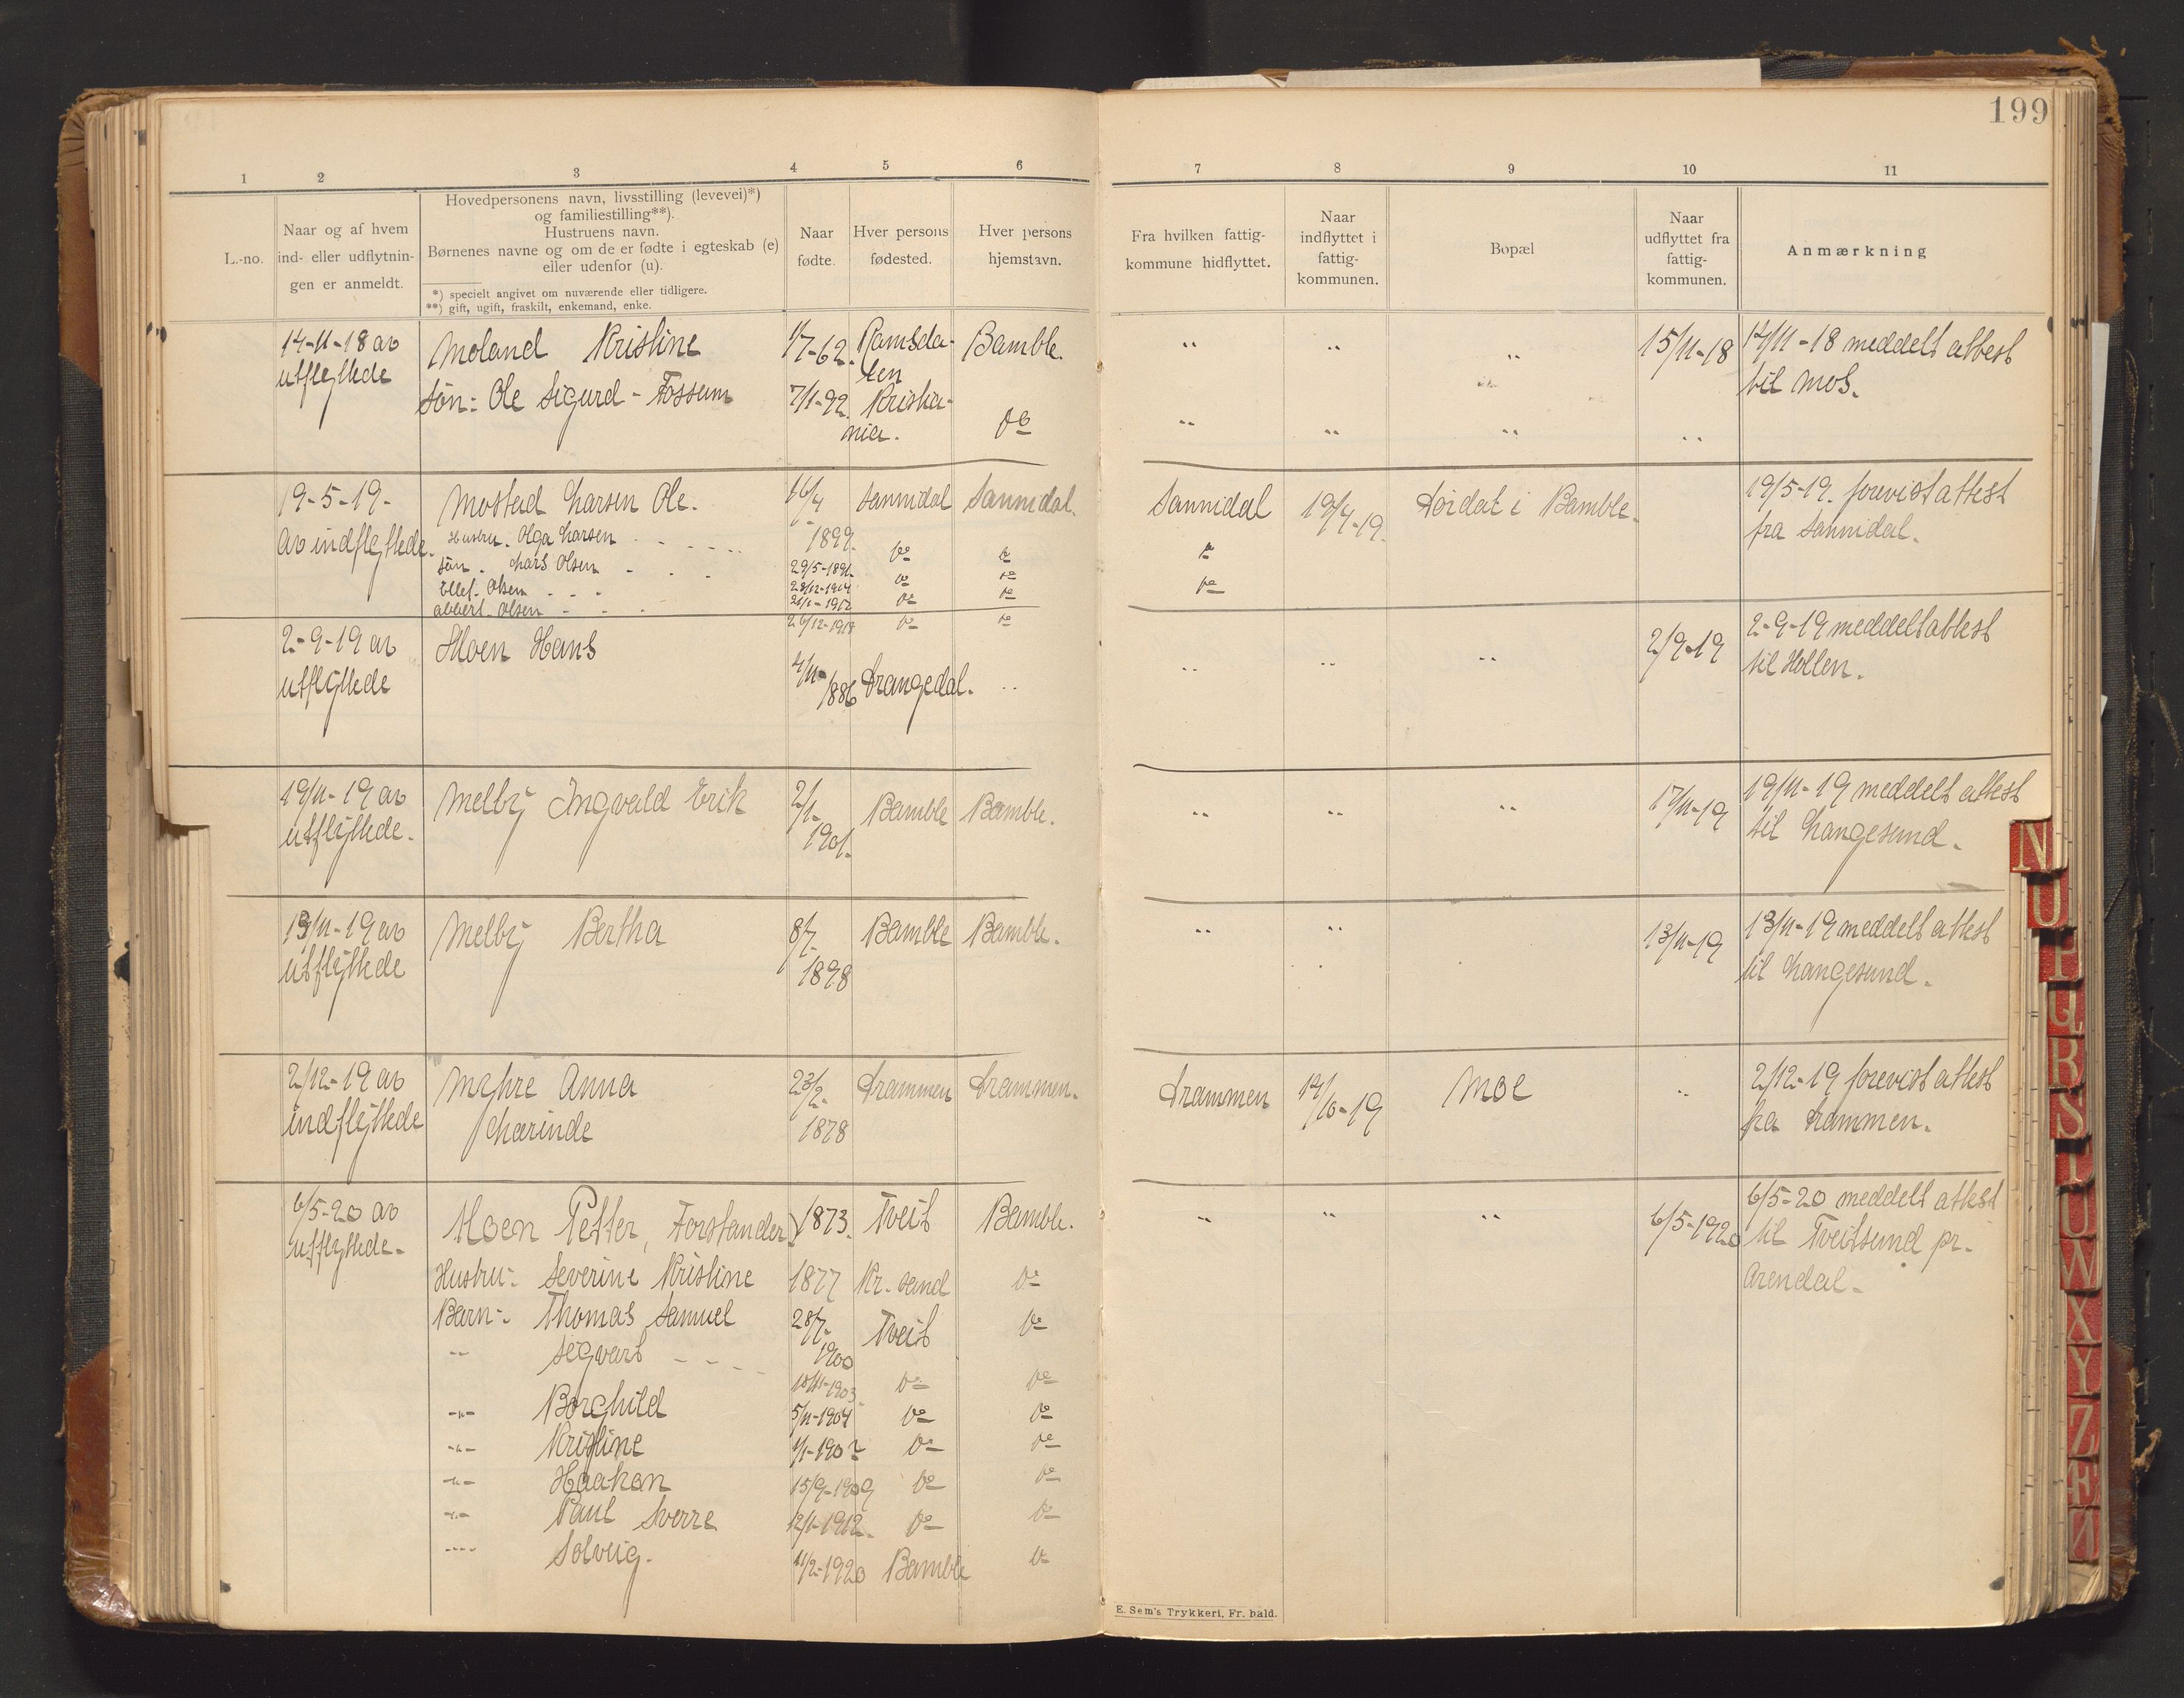 199
1 2 3 4 5 6 7 8 9 10 11
L.-no.
Naar og af hvem
ind- eller udflytnin-
gen er anmeldt.
Hovedpersonens navn, livsstilling (levevei)*)
og familiestilling**).
Hustruens navn.
Børnenes navne og om de er fødte i egteskab (e)
eller udenfor (u).
*) specielt angivet om nuværende eller tidligere.
**) gift, ugift, fraskilt, enkemand, enke.
Naar
fødte.
Hver persons
fødested.
Hver persons
hjemstavn.
Fra hvilken fattig-
kommune hidflyttet.
Naar
indflyttet i
fattig-
kommunen.
Bopæl
Naar
udflyttet fra
fattig-
kommunen.
Anmærkning
14-11-18 av Moland Kristine 1/7-62. Ramsda- Bamble. " " " 15/11-18 14/11-18 meddelt attest
utflyttede len til Mos.
Søn: Ole Sigurd - Fossum 7/1-92. Kristia- " " " "
nia. do
19-5-19- Mostad Larsen Ole. 16/4 Sannidal Sannidal. Sannidal 19/4-19. Tordal i Bamble. 19/5-19. forevist attest
av indflyttede. Hustru. Olga Larsen 1899. do do do fra Sannidal.
Søn. Lars Olsen 29/5-1891. do do do
Ellef. Olsen 28/12-1904 do do
Albert. Olsen 21/1-1912 do do
26/12-1918
2-9-19 av Moen Hans 4/11- Drangedal. " " " " 2/9-19 2-9-19 meddelt attest
utflyttede 1886 til Hollen.
19/11-19 av Melby Ingvald Erik 2/1- Bamble Bamble. " " " 17/11-19 19/11-19 meddelt attest
utflyttede. 1901. til Langesund.
13/11-19 av Melby Bertha 8/7- Bamble Bamble. " " 13/11-19 13/11-19 meddelt attest
utflyttede 1898 til Langesund.
2/12-19 av Mahre Anna 23/2- Drammen Drammen. Drammen 14/10-19 Moe " 2/12-19 forevist attest
indflyttede Lærinde 1878 fra Drammen.
6/5-20 av Moen Petter, Forstander 1873. Tveit Bamble. " " " 6/5-1920 6/5-20 meddelt attest
utflyttede. til Tveitsund pr.
Hustru: Severine Kristine 1877 Kr. sand do Arendal.
Barn: Thomas Samuel 28/7- Tveit do
1900
" Sigvart 18/11-1903 do do
" Borghild 5/11-1904 do do
" Kristine 1/1-1907 do do
" Haakon 15/9-1909 do do
" Paul Sverre 12/1-1912. do do
" Solveig. 11/2-1920 Bamble do
E. Sem's Trykkeri, Fr. hald.
N
O
P
Q
R
S
T
U
W
X
Y
Z
Æ
Ø